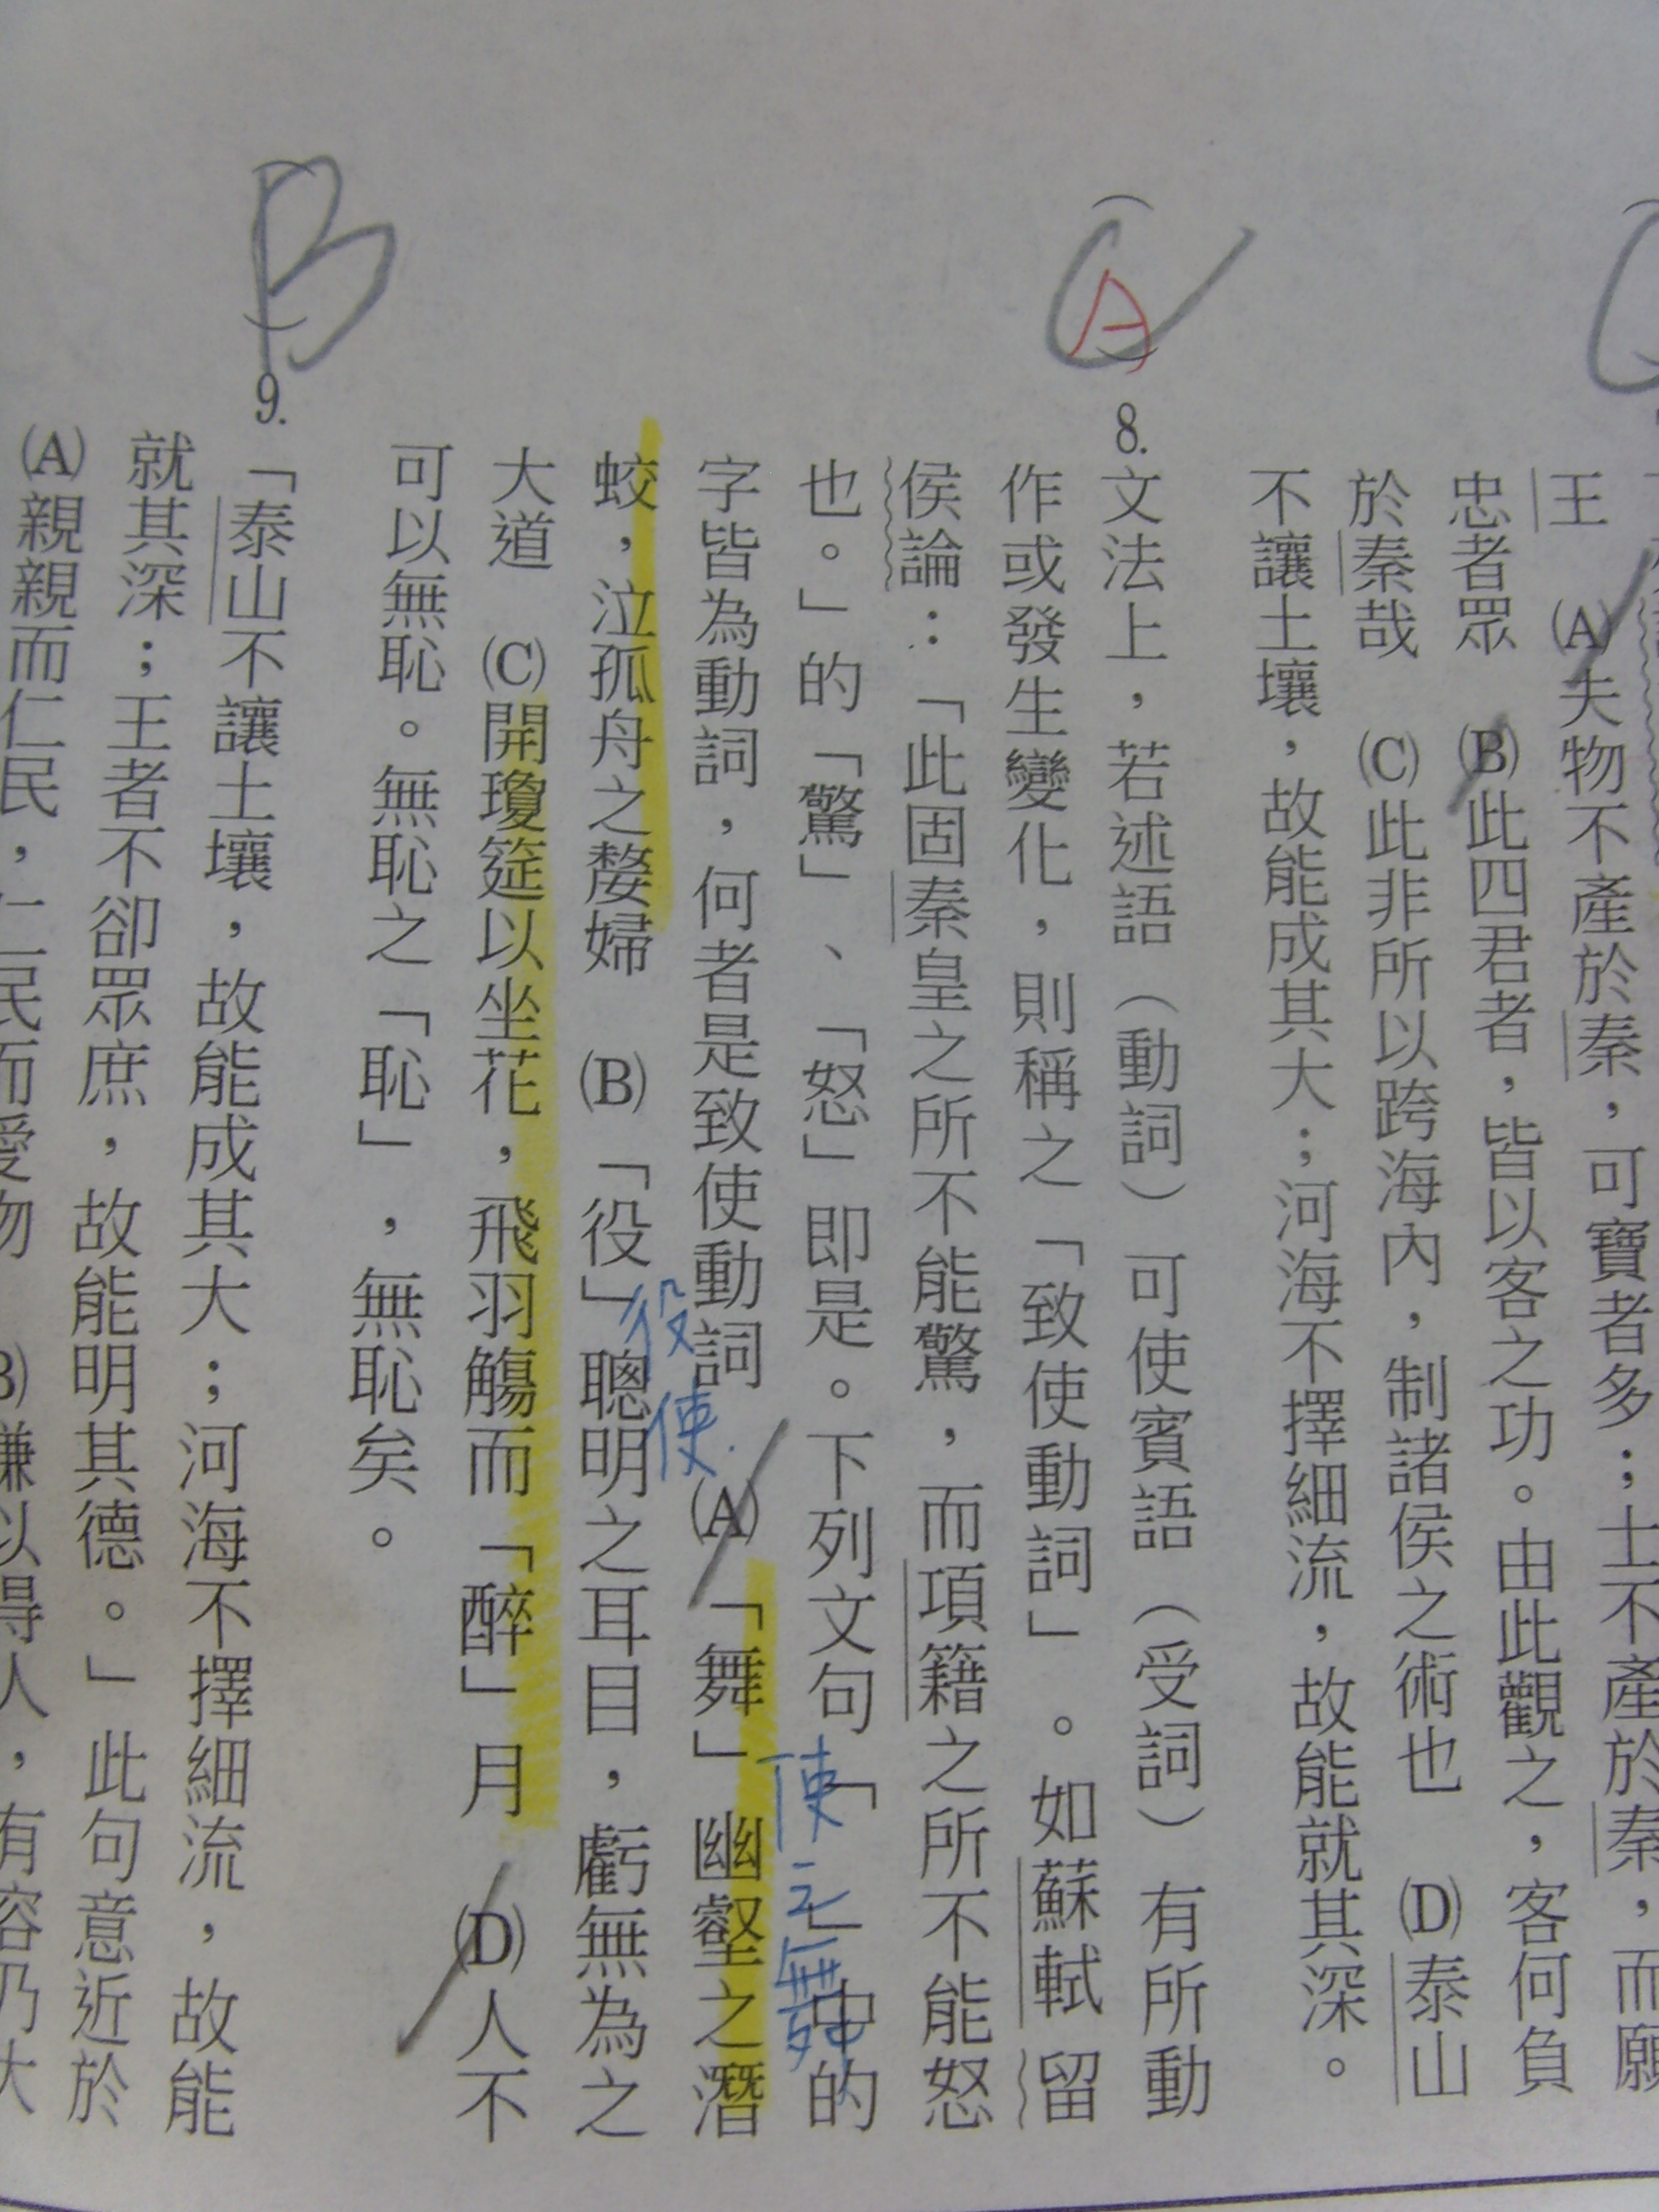 王 (A)夫物不產於秦，可寶者多；士不產於秦，而願
忠者眾 (B)此四君者，皆以客之功。由此觀之，客何負
於秦哉 (C)此非所以跨海內，制諸侯之術也 (D)泰山
不讓土壤，故能成其大；河海不擇細流，故能就其深。
C
A
8.文法上，若述語（動詞）可使賓語（受詞）有所動
作或發生變化，則稱之「致使動詞」。如蘇軾留
侯論：「此固秦皇之所不能驚，而項籍之所不能怒
也。」的「驚」、「怒」即是。下列文句「」中的
字皆為動詞，何者是致使動詞 (A)「舞」幽壑之潛
使之舞
蛟，泣孤舟之嫠婦 (B)「役」聰明之耳目，虧無為之
役使
大道 (C)開瓊筵以坐花，飛羽觴而「醉」月 (D)人不
可以無恥。無恥之「恥」，無恥矣。
B
9.「泰山不讓土壤，故能成其大；河海不擇細流，故能
就其深；王者不卻眾庶，故能明其德。」此句意近於
(A)親親而仁民，仁民而愛物 (B)謙以得人，有容乃大